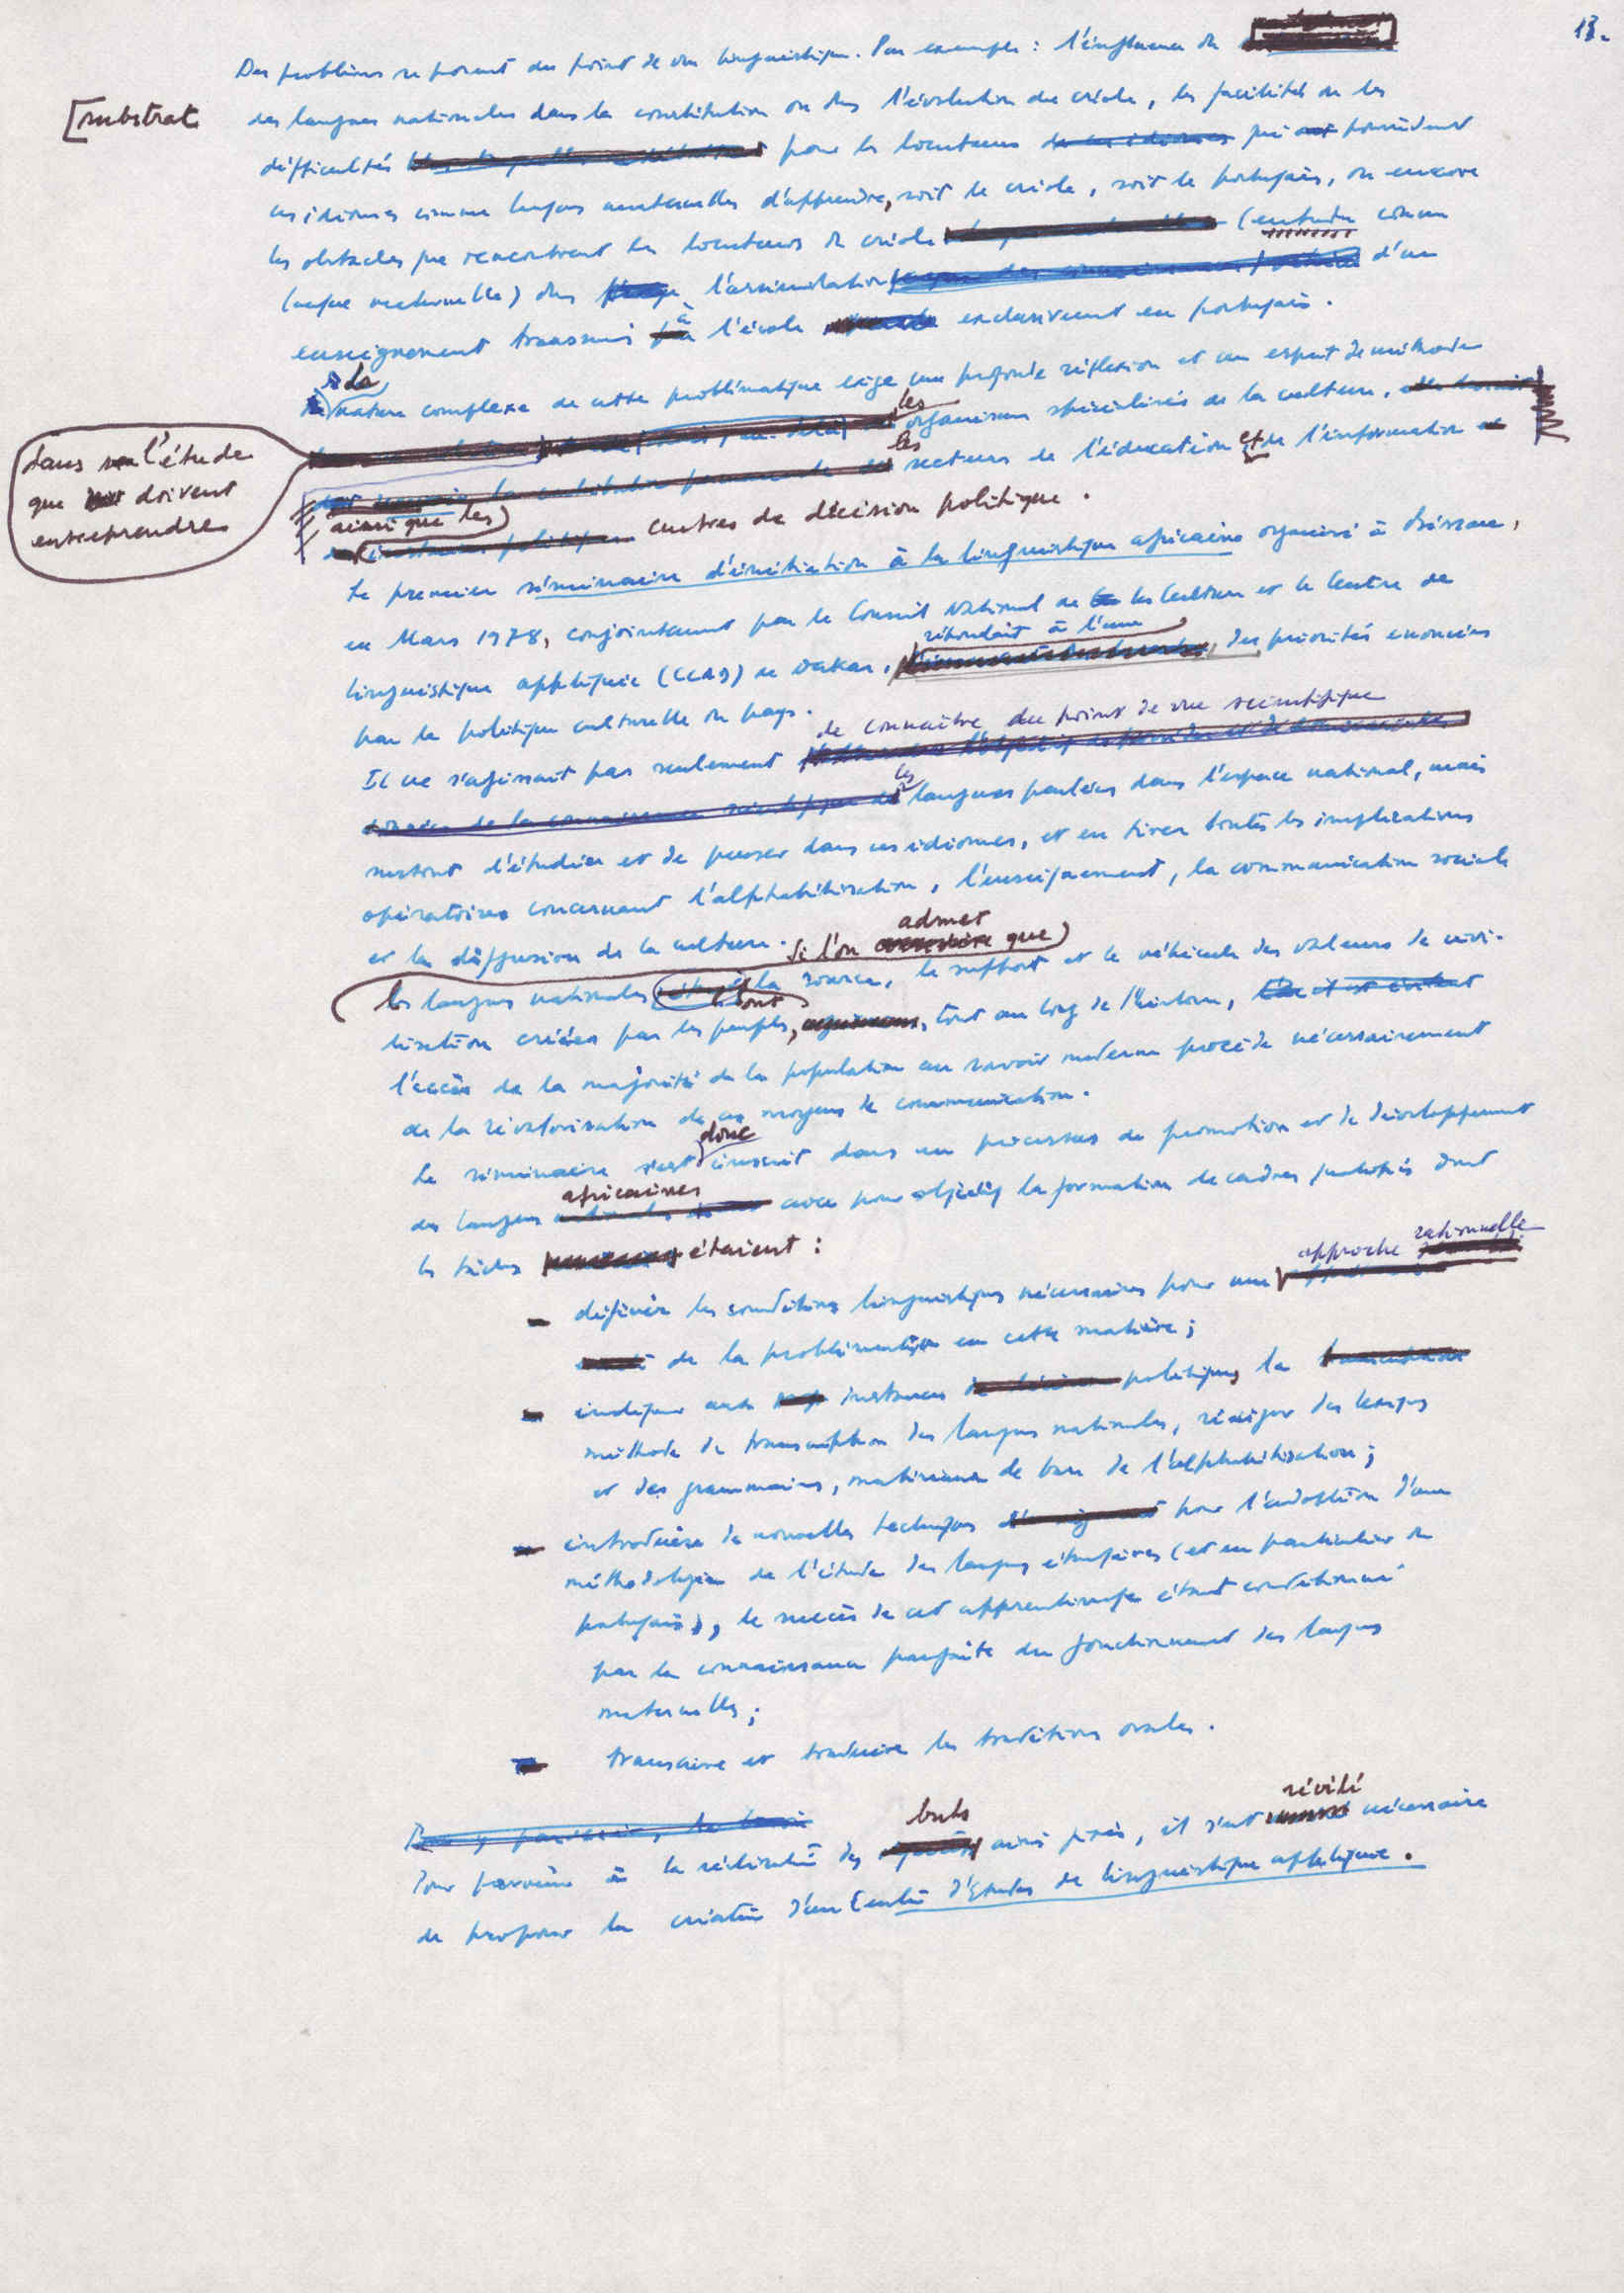 13.
Des problèmes se posent du point de vue linguistique. Par exemple : l'influence du
[substrat
des langues nationales dans la constitution ou dans l'évolution du créole, les facilités ou les
difficultés pour les locuteurs de ces idiomes qui ont possèdent
ces idiomes comme langues maternelles d'apprendre, soit le créole, soit le portugais, ou encore
les obstacles que rencontrent les locuteurs du créole (entendu comme
langue maternelle) dans l'assimilation d'un
enseignement transmis à l'école exclusivement en portugais.
La
nature complexe de cette problématique exige une profonde réflexion et un esprit de méthode
dans l'étude
que doivent
entreprendre
les
organismes spécialisés de la culture,
les
secteurs de l'éducation et de l'information
ainsi que les
centres de décision politique.
Le premier séminaire d'initiation à la linguistique africaine organisé à Bissau,
en Mars 1978, conjointement par le Conseil National de la Culture et le Centre de
répondait à l'une
linguistique appliquée (CLAD) de Dakar, des priorités énoncées
par la politique culturelle du pays.
de connaître du point de vue scientifique
Il ne s'agissait pas seulement
les
langues parlées dans l'espace national, mais
surtout d'étudier et de penser dans ces idiomes, et en tirer toutes les implications
opératoires concernant l'alphabétisation, l'enseignement, la communication sociale
admet
et la diffusion de la culture. Si l'on considère que
les langues nationales la source, le support et le véhicule des valeurs de civi-
sont
lisation créées par les peuples, tout au long de l'histoire,
l'accès de la majorité de la population au savoir moderne procède nécessairement
de la revalorisation de ces moyens de communication.
donc
Le séminaire s'est inscrit dans un processus de promotion et de développement
africaines
des langues nationales avec pour objectif la formation de cadres dont
les tâches étaient :
approche rationnelle
- définir les conditions linguistiques nécessaires pour une
de la problématique en cette matière ;
- indiquer aux instances politiques la
méthode de transcription des langues nationales, rédiger des lexiques
et des grammaires, matériaux de base de l'alphabétisation ;
- introduire de nouvelles techniques pour l'adoption d'une
méthodologie de l'étude des langues étrangères (et en particulier du
portugais), le succès de cet apprentissage étant conditionné
par la connaissance parfaite du fonctionnement des langues
maternelles ;
- transcrire et traduire les traditions orales.
buts
révélé
Pour parvenir à la réalisation des ainsi fixés, il s'est nécessaire
de proposer la création d'un Centre d'Etudes de linguistique appliquée.